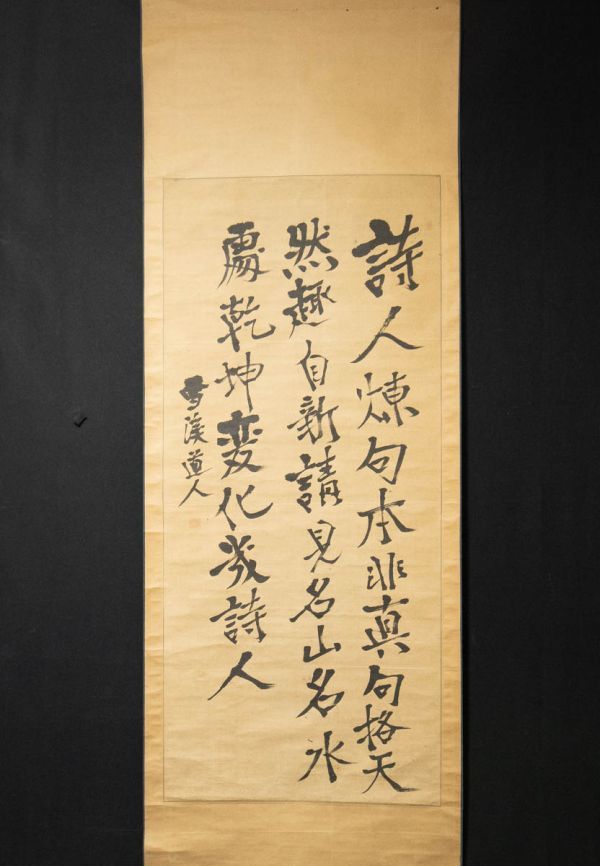 詩人煉句本非真句格天
然趣自新請見名山名水
處乾坤変化幾詩人
雪溪道人